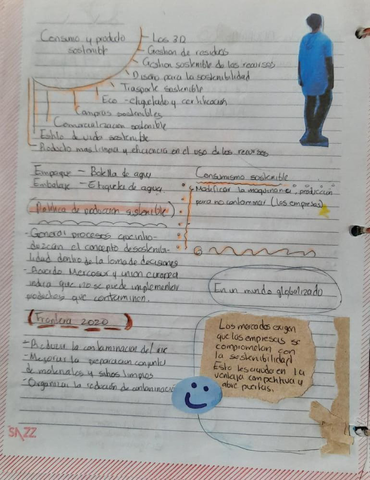 Consumo y producto
sostenible
Las 3D
Gestion de residuos
Gestion sostenible de los recursos
Diseño para la sostenibilidad
Trasporte sostenible
Eco-etiquetado y certificacion
Compras sostenibles
Comercializacion sostenible
Estilo de vida sostenible
Producto mas limpia y eficiencia en el uso de los recursos
Empaque - Botella de agua
Embalaje - Etiqueta de agua
Politica de produccion sostenible
- General procesos
el concepto de sosteni-
bilidad dentro de la toma de decisiones
- Acuerdo Mercosur y union europea
indica que no se puede implementar
productos que contaminen.
Frontera 2020
- Reducir la contaminacion del aire
- Mejorar la separacion conjunta
de materiales y sabios limpios
- Organizar la reducion de contaminacion
Consumismo sostenible
Modificar la maquinaria "produccion"
para no contaminar (las empresas)
En un mundo globalizado
Los mercados exigen
que las empresas se
comprometan con
la sostenibilidad
Esto les ayuda en la
ventaja competitiva y
abre puertas.